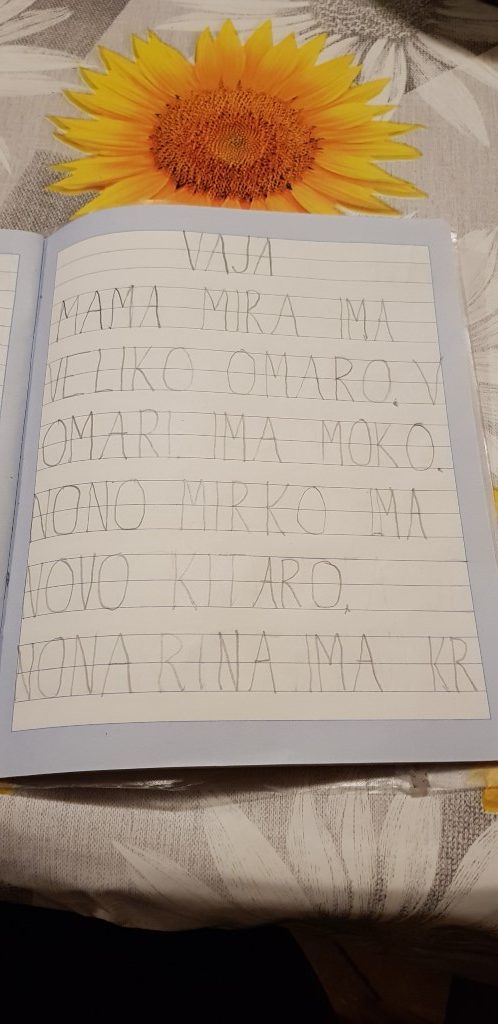 VAJA
MAMA MIRA IMA
VELIKO OMARO. V
OMARI IMA MOKO.
NONO MIRKO IMA
NOVO KITARO.
NONA RINA IMA KR